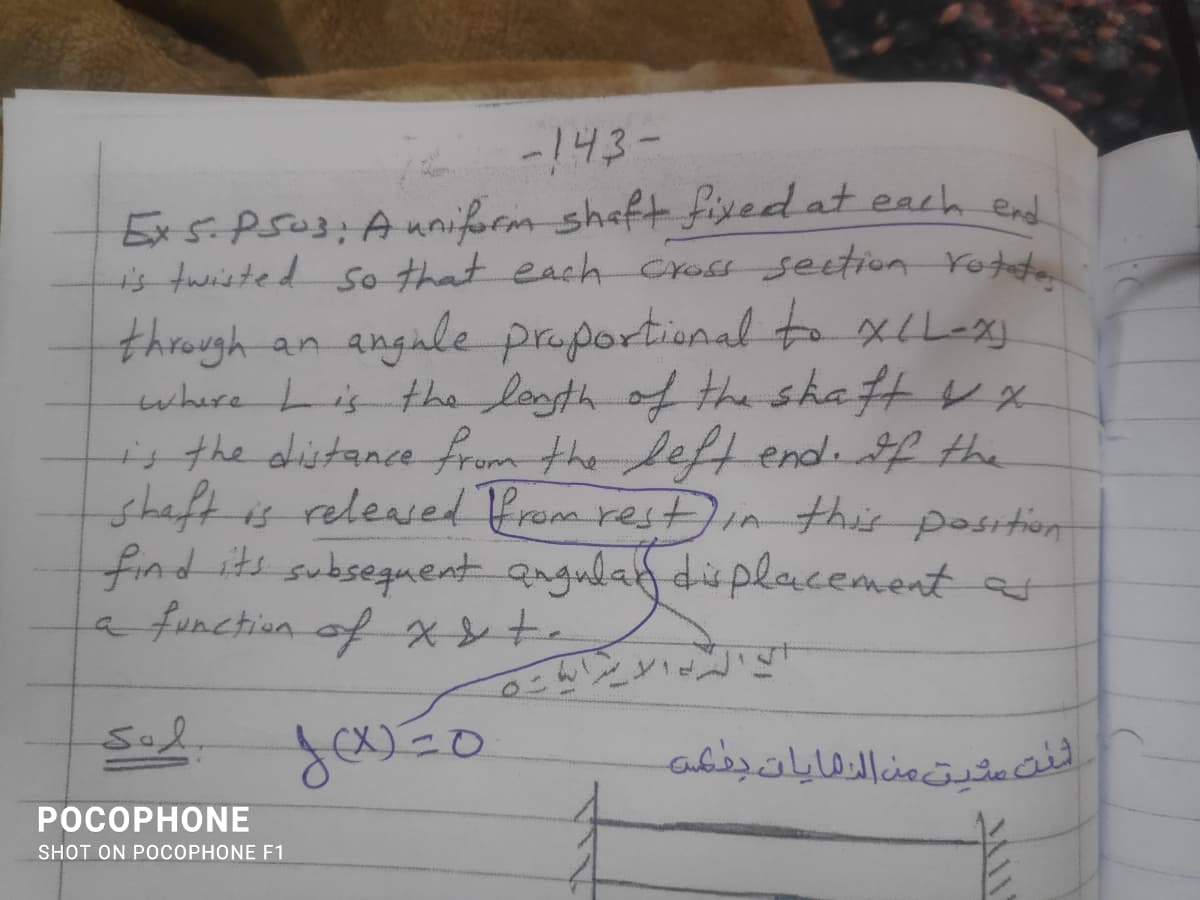 -143-
Ex 5. P503: A uniform shaft fixed at each end
is twisted so that each cross section rotates
through an angule proportional to x(L-x)
where L is the length of the shaft & x
is the distance from the left end. If the
shaft is released from rest in this position
find its subsequent angular displacement as
a function of x & t.
السرعه الابتدائية = 0
Sol. g(x)=0
شفت مثبت من النهايات
POCOPHONE
SHOT ON POCOPHONE F1